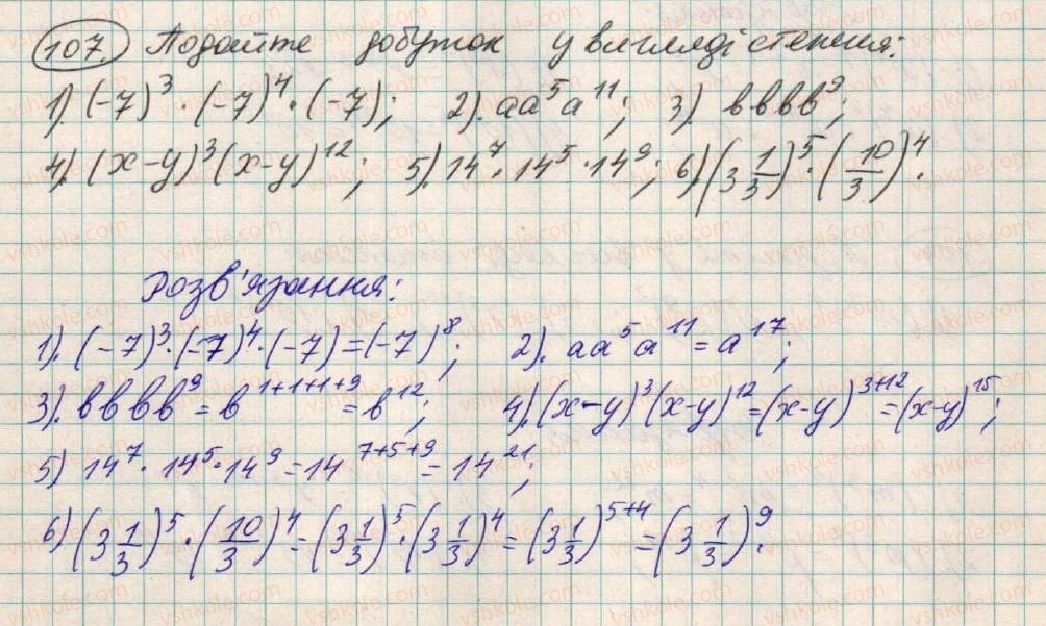 107. Подайте добуток у вигляді степення:
1). (-7)³ · (-7)⁴ · (-7); 2). aa⁵a¹¹; 3). вввв⁹;
4). (x-y)³(x-y)¹²; 5). 14⁷ · 14⁵ · 14⁹; 6) (3 1/3)⁵ · (10/3)⁴.
Розв'язання:
1). (-7)³ · (-7)⁴ · (-7) = (-7)⁸; 2). aa⁵a¹¹ = a¹⁷;
3). вввв⁹ = в¹⁺¹⁺¹⁺⁹ = в¹²; 4). (x-y)³(x-y)¹² = (x-y)³⁺¹² = (x-y)¹⁵;
5) 14⁷ · 14⁵ · 14⁹ = 14⁷⁺⁵⁺⁹ = 14²¹;
6) (3 1/3)⁵ · (10/3)⁴ = (3 1/3)⁵ · (3 1/3)⁴ = (3 1/3)⁵⁺⁴ = (3 1/3)⁹.